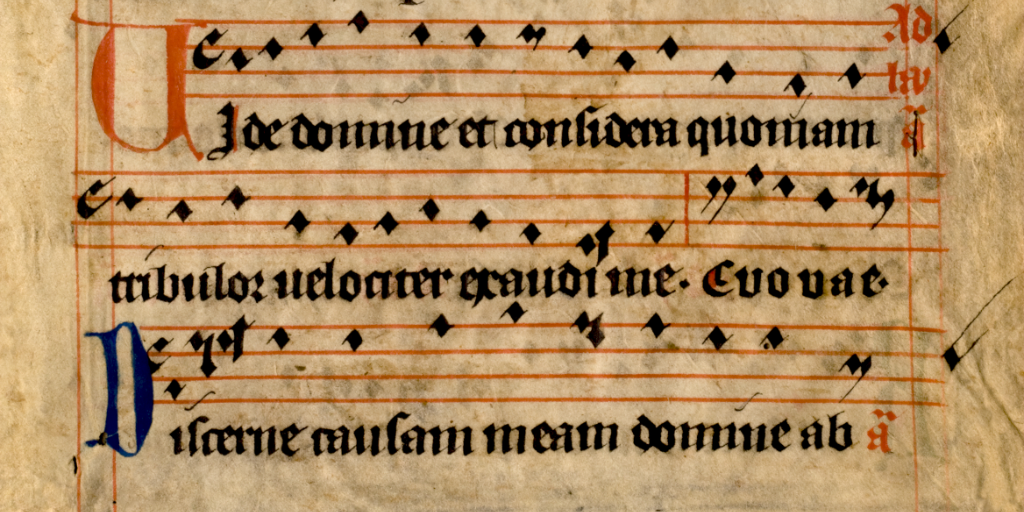 VIde domine et considera quoniam
Ad
lau
a
tribulor uelociter exaudi me. Euouae.
Discerne causam meam domine ab a